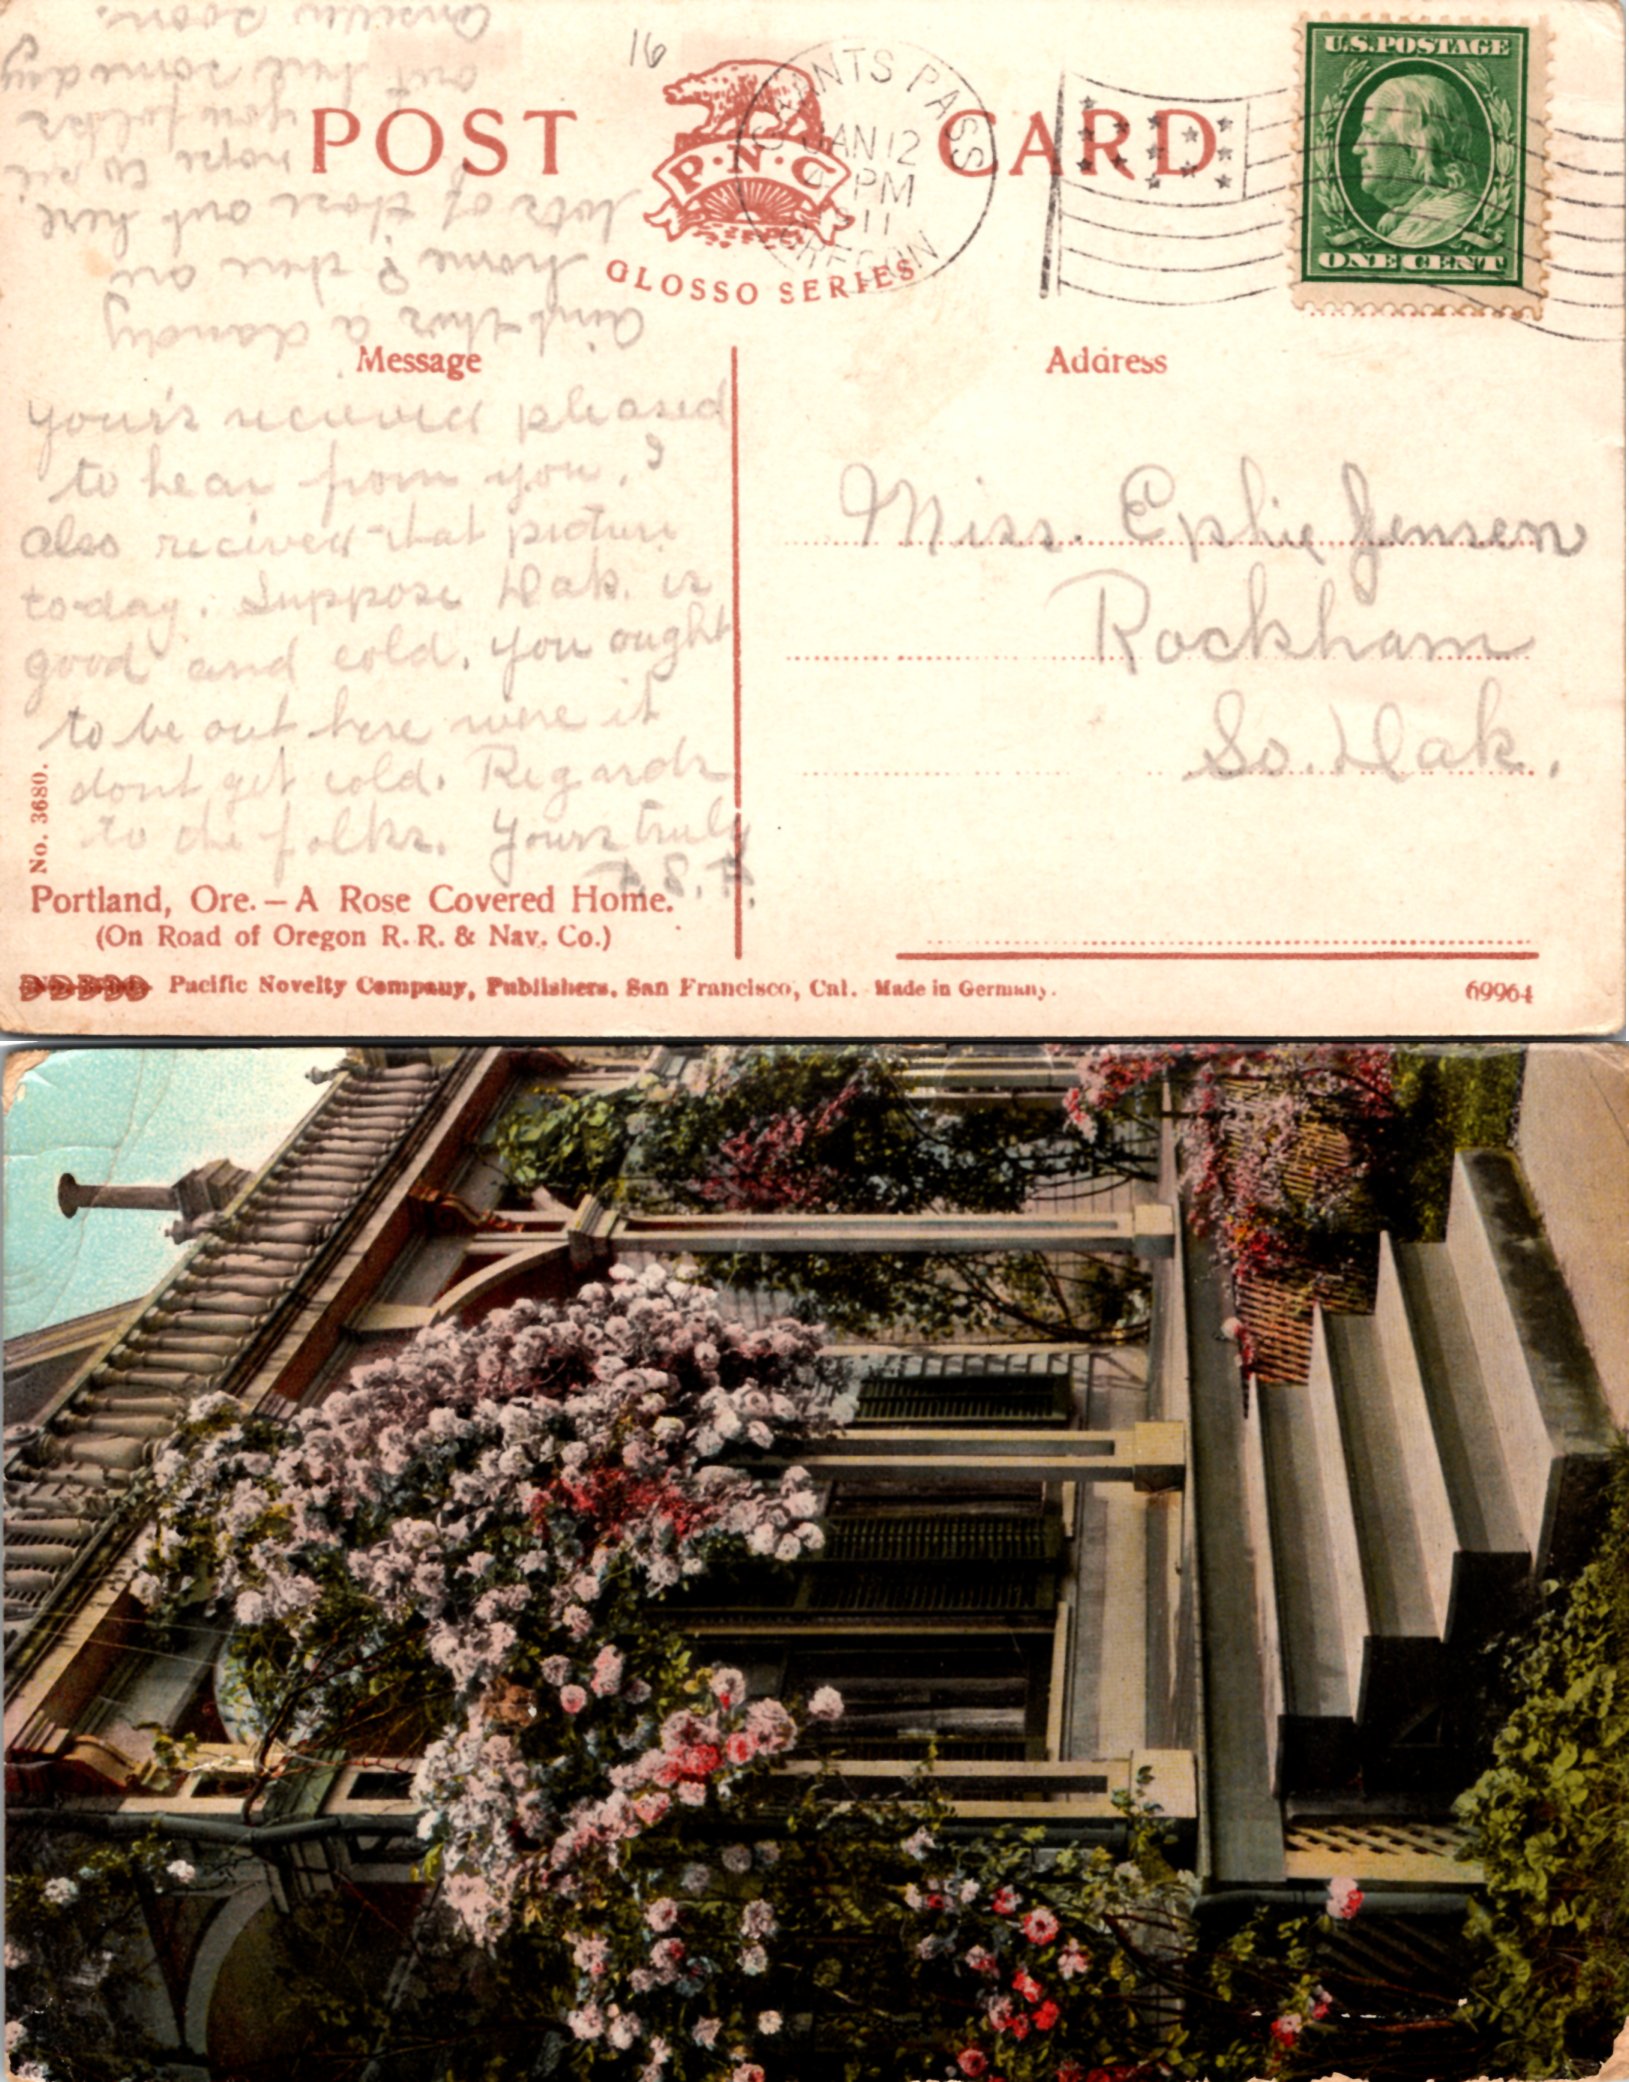 16
POST CARD
P·N·C
GLOSSO SERIES
GRANTS PASS
JAN 12
4 PM
1911
OREGON
U.S. POSTAGE
ONE CENT
Message
Address
Your's recieved pleased
to hear from you. I
also recieved that picture
to-day. Suppose Dak. is
good and cold. You ought
to be out here were it
dont get cold. Regards
to the folks. Yours truly
F.S.F.
aint this a dandy
home? there are
lots of those out here.
hope to see
you folks
out here someday
Answer soon.
Miss. Ephie Jensen
Rockham
So. Dak.
No. 3680.
Portland, Ore. — A Rose Covered Home.
(On Road of Oregon R. R. & Nav. Co.)
Pacific Novelty Company, Publishers, San Francisco, Cal. Made in Germany.
69964